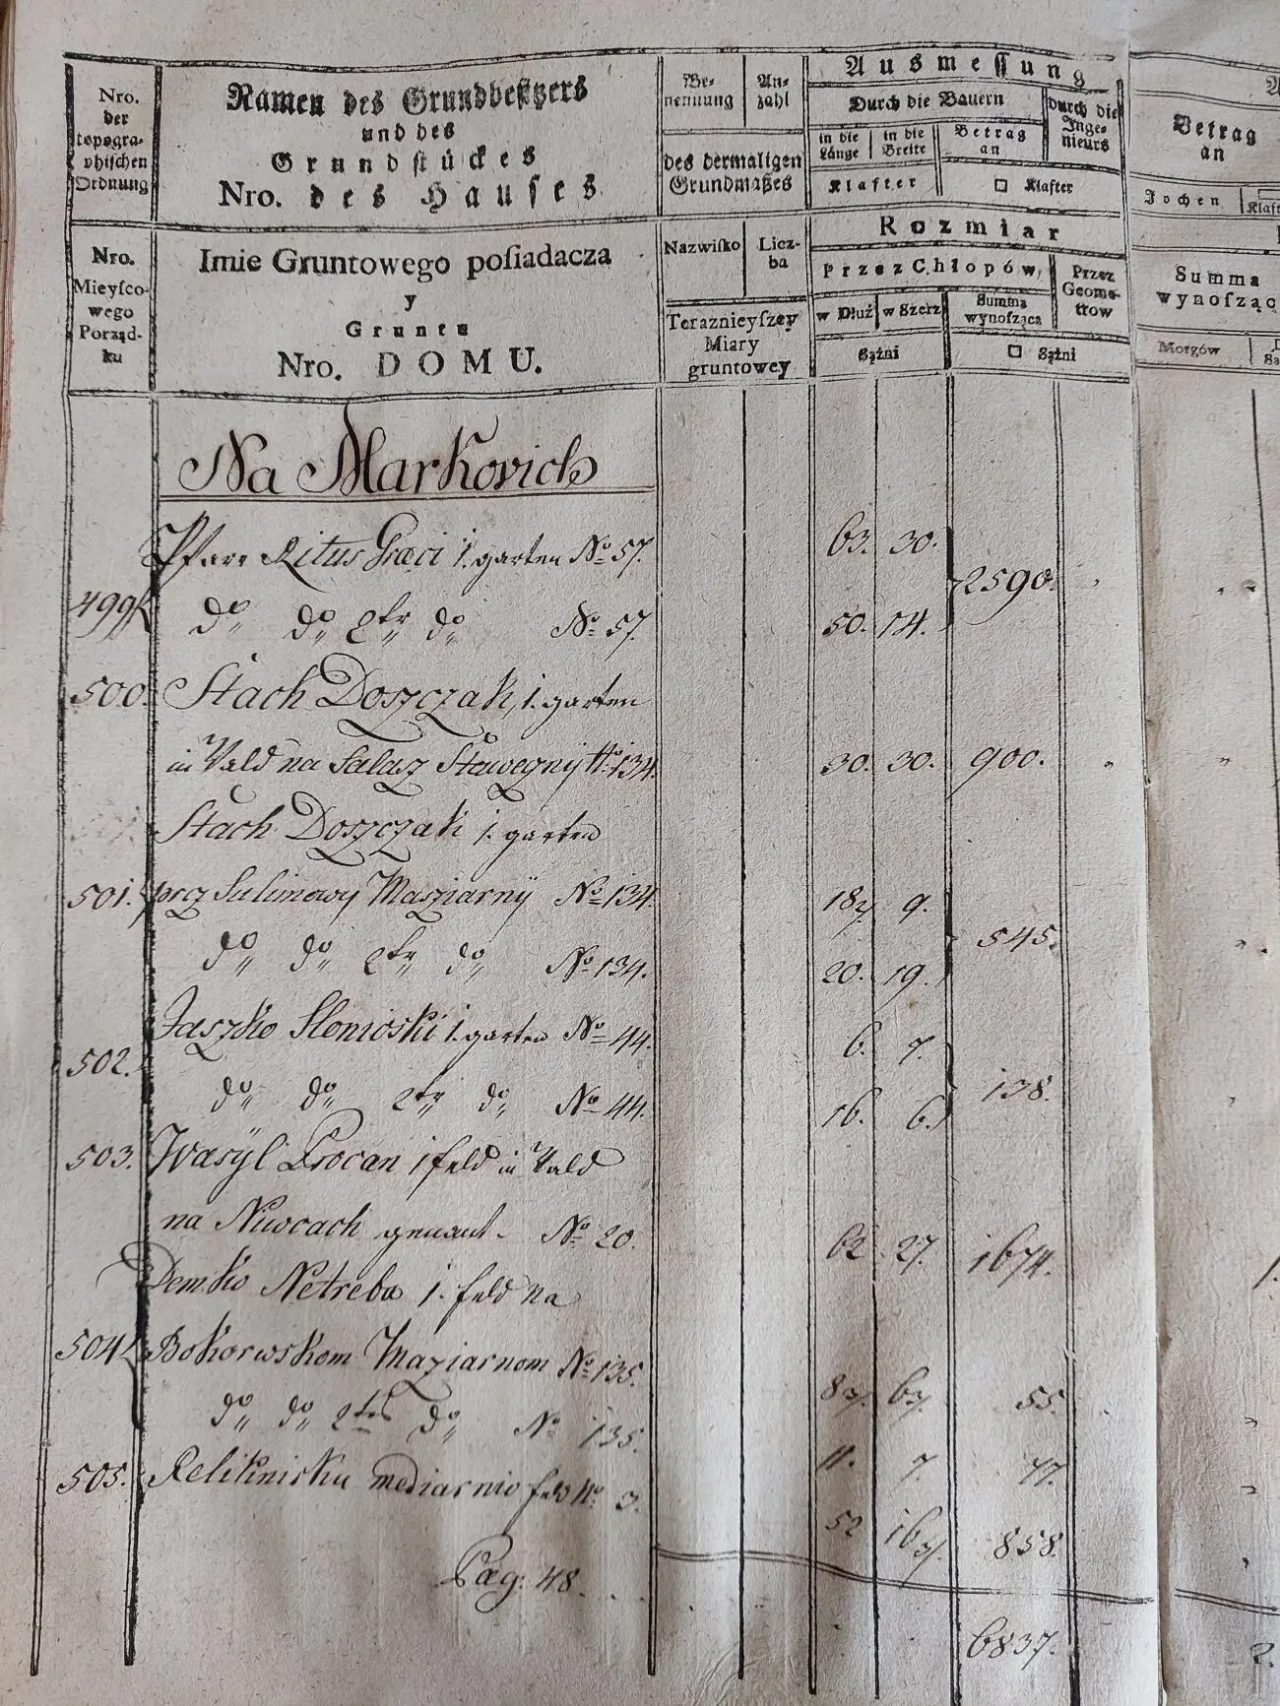 Nro. der topogra- phischen Ordnung
Namen des Grundbesitzers
und des
Grundstückes
Nro. des Hauses
Be- nennung
An- zahl
des dermaligen Grundmaßes
Ausmessung
Durch die Bauern
durch die Inge- nieurs
in die Länge
in die Breite
Betrag an
Klafter
□ Klafter
Betrag an
Jochen
Klaft
Nro. Mieyſco- wego Porząd- ku
Imie Gruntowego poſiadacza
y
Gruntu
Nro. DOMU.
Nazwiſko
Licz- ba
Teraznieyſzey Miary gruntowey
Rozmiar
przez Chłopów,
Przez Geome- trow
w Dłuź
w Szerz
Summa wynoſząca
Sążni
□ Sążni
Summa wynoſząc
Morgów
Na Markovich
Pfarr Ritus Græci 1. garten No 57. 63. 30.
499 do do 2ter do No 57. 50. 14. 2590.
500. Stach Doszczak, 1. garten
in Vald na Salasz Stawegnÿ No 134. 30. 30. 900.
Stach Doszczak 1. garten
501. prz Sulimowy Masziarnÿ No 134. 18 9.
do do 2ter do No 134. 20. 19. 545.
Jaszko Slonioski 1. garten No 44. 6. 7.
502. do do 2ter do No 44. 16. 6. 138.
503. Wasÿl Procan 1 feld in Vald
na Niwcach genant. No 20. 62 27. 1674.
Demko Netreba 1. feld na
504 Bokorwskom Maziarnom No 135. 8 6 55.
do do 2tes do No 135. 11. 7. 77.
505. mediarnio feld No 3. 52 16 858.
Pag: 48.
6837.